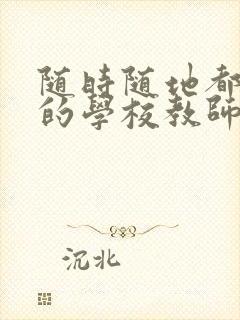 随時随地都
的學校教師
沉北